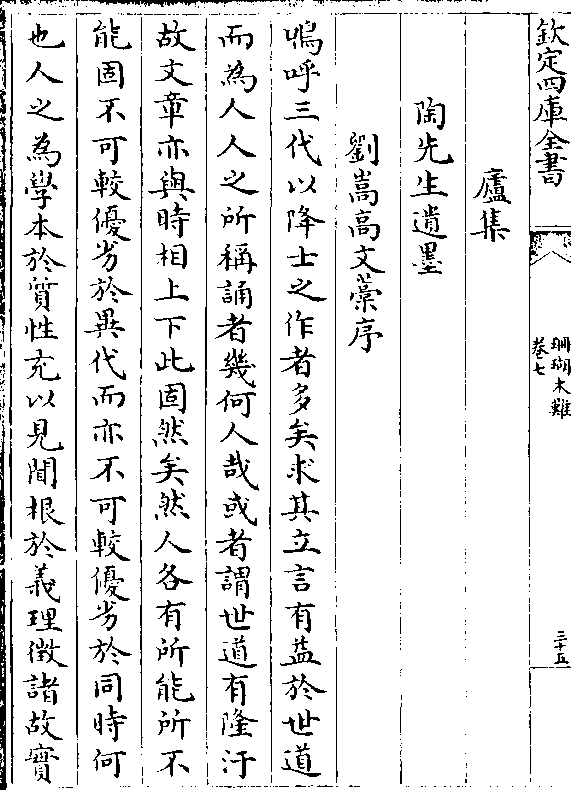 欽定四庫全書
珊瑚木難
卷七
三十五
廬集
陶先生遺墨
劉嵩高文藁序
嗚呼三代以降士之作者多矣求其立言有益於世道
而為人人之所稱誦者幾何人哉或者謂世道有隆汙
故文章亦與時相上下此固然矣然人各有所能所不
能固不可較優劣於異代而亦不可較優劣於同時何
也人之為學本於質性充以見聞根於義理徵諸故實